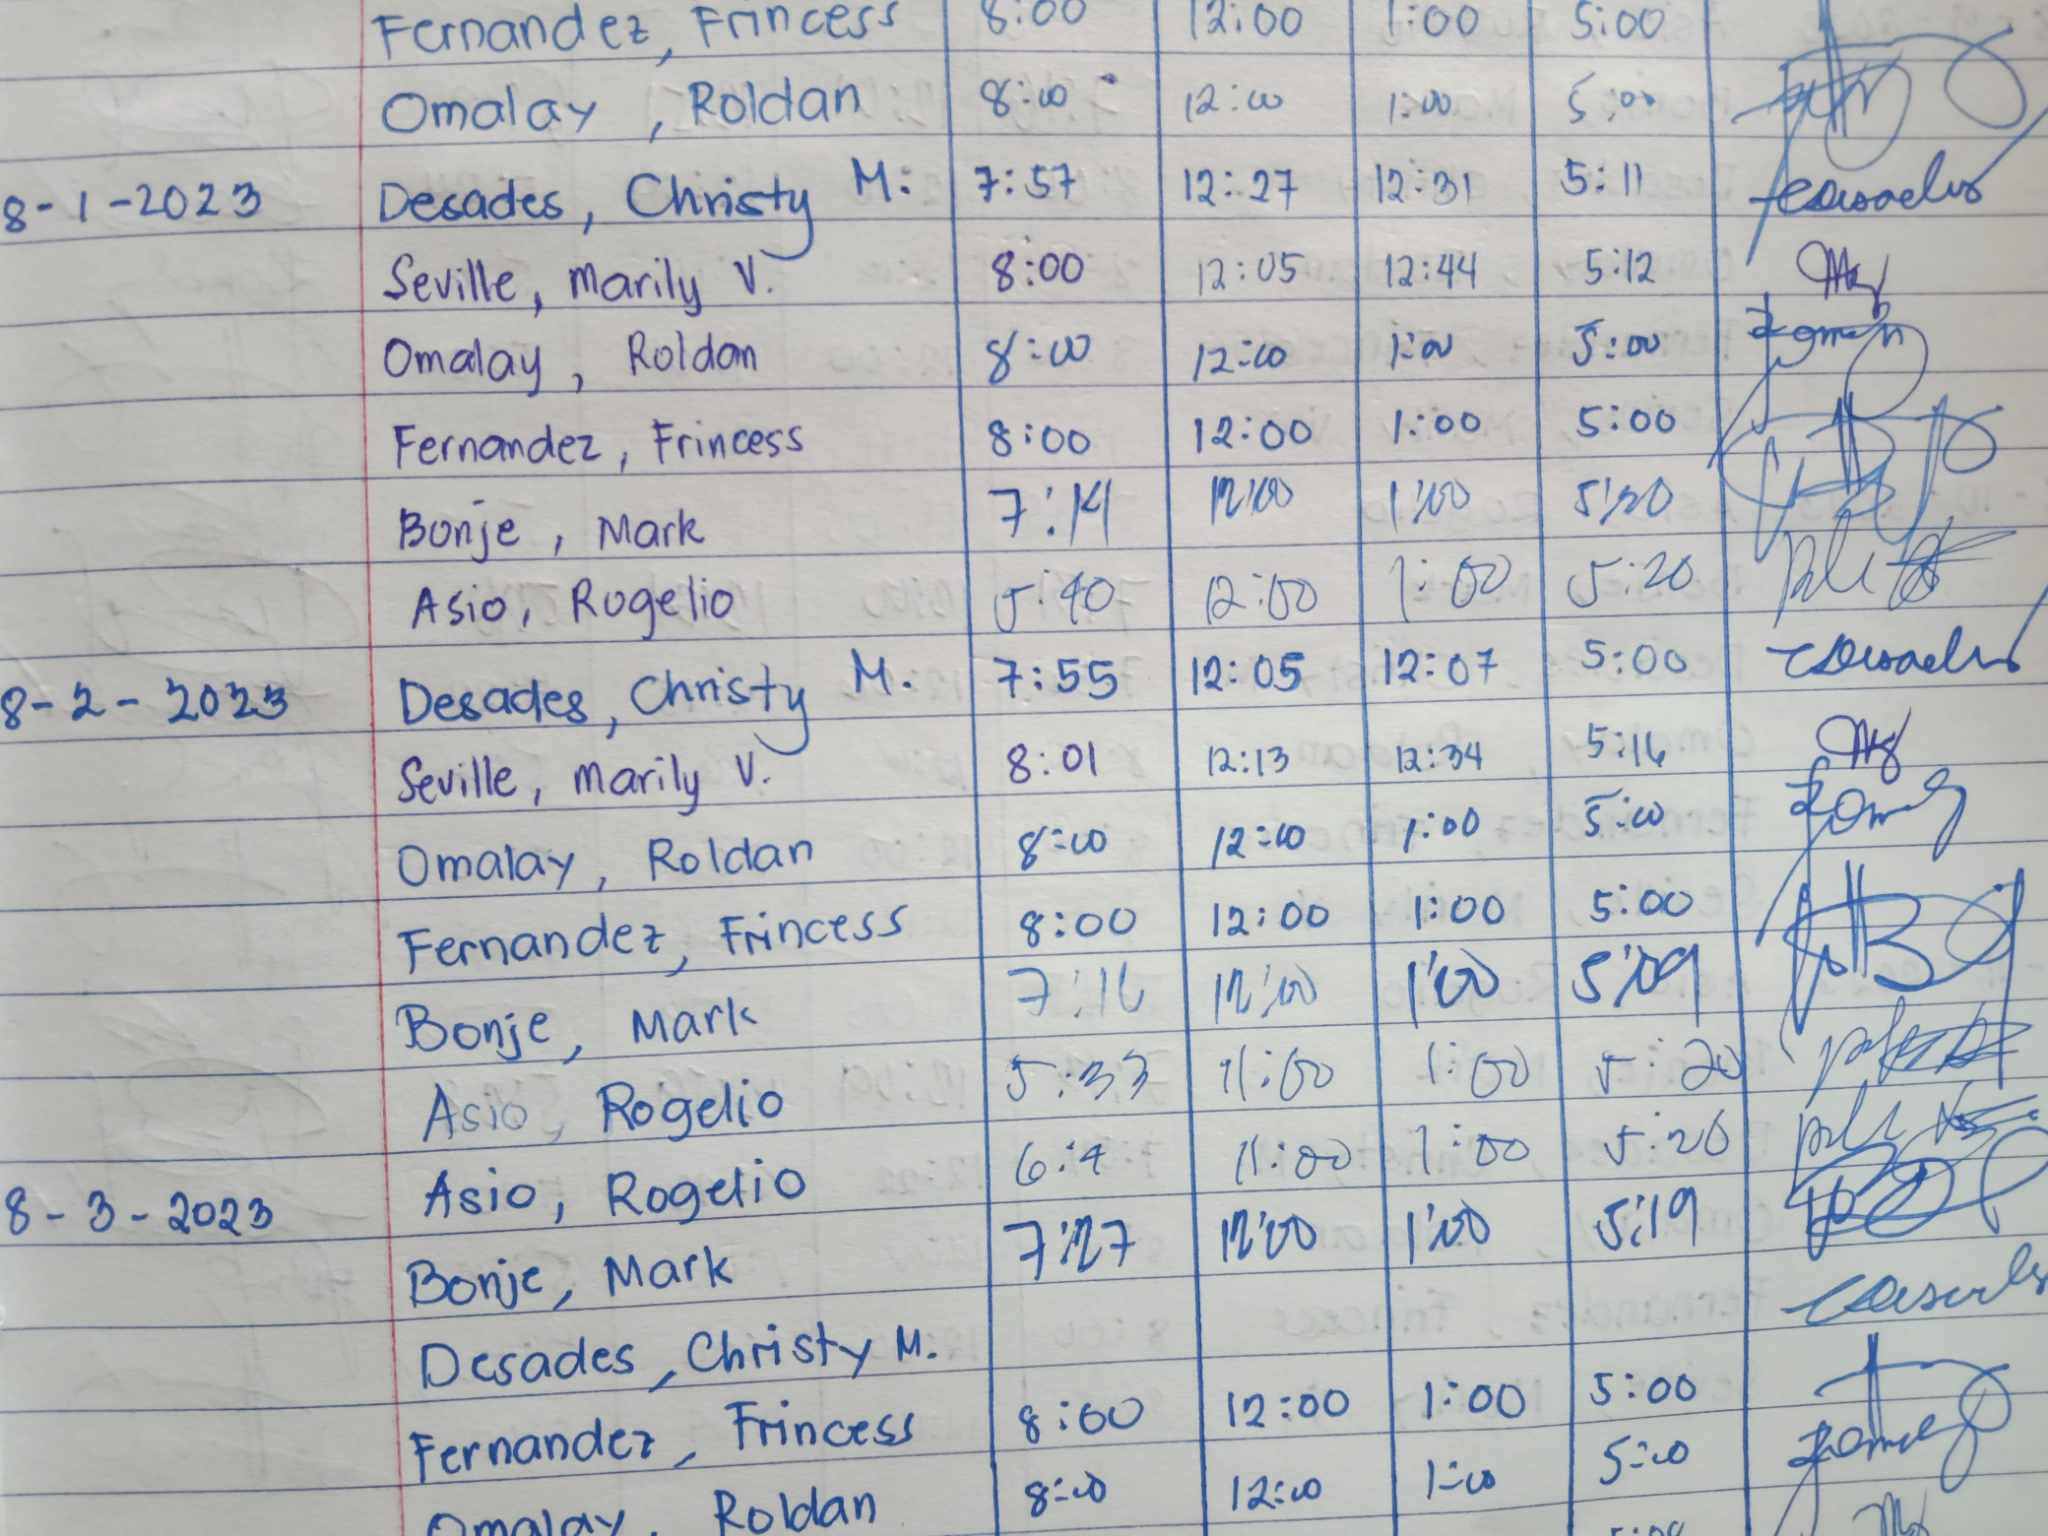 Fernandez, Frincess 8:00 12:00 1:00 5:00
Omalay, Roldan 8:00 12:00 1:00 5:00
8-1-2023 Desades, Christy M. 7:57 12:27 12:31 5:11
Seville, Marily V. 8:00 12:05 12:44 5:12
Omalay, Roldan 8:00 12:00 1:00 5:00
Fernandez, Frincess 8:00 12:00 1:00 5:00
Bonje, Mark 7:14 12:00 1:00 5:20
Asio, Rogelio 5:40 12:00 1:00 5:20
8-2-2023 Desades, Christy M. 7:55 12:05 12:07 5:00
Seville, Marily V. 8:01 12:13 12:34 5:16
Omalay, Roldan 8:00 12:00 1:00 5:00
Fernandez, Frincess 8:00 12:00 1:00 5:00
Bonje, Mark 7:16 12:00 1:00 5:09
Asio, Rogelio 5:33 11:00 1:00 5:20
8-3-2023 Asio, Rogelio 6:4 11:00 1:00 5:20
Bonje, Mark 7:27 12:00 1:00 5:19
Desades, Christy M.
Fernandez, Frincess 8:00 12:00 1:00 5:00
Omalay, Roldan 8:00 12:00 1:00 5:00